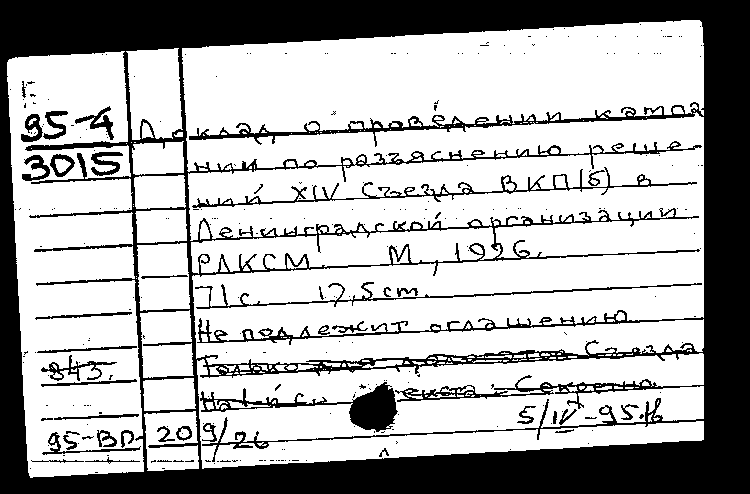 95-4
3015
Доклад о проведении кампа-
нии по разъяснению реше-
ний XIV Съезда ВКП(б) в
Ленинградской организации
РЛКСМ. М., 1926.
71с. 17,5cm.
Не подлежит оглашению
Только для делегатов Съезда
843.
На 1-й с. текста: Секретно.
5/IV-95.
95-ВП- 20 9/26